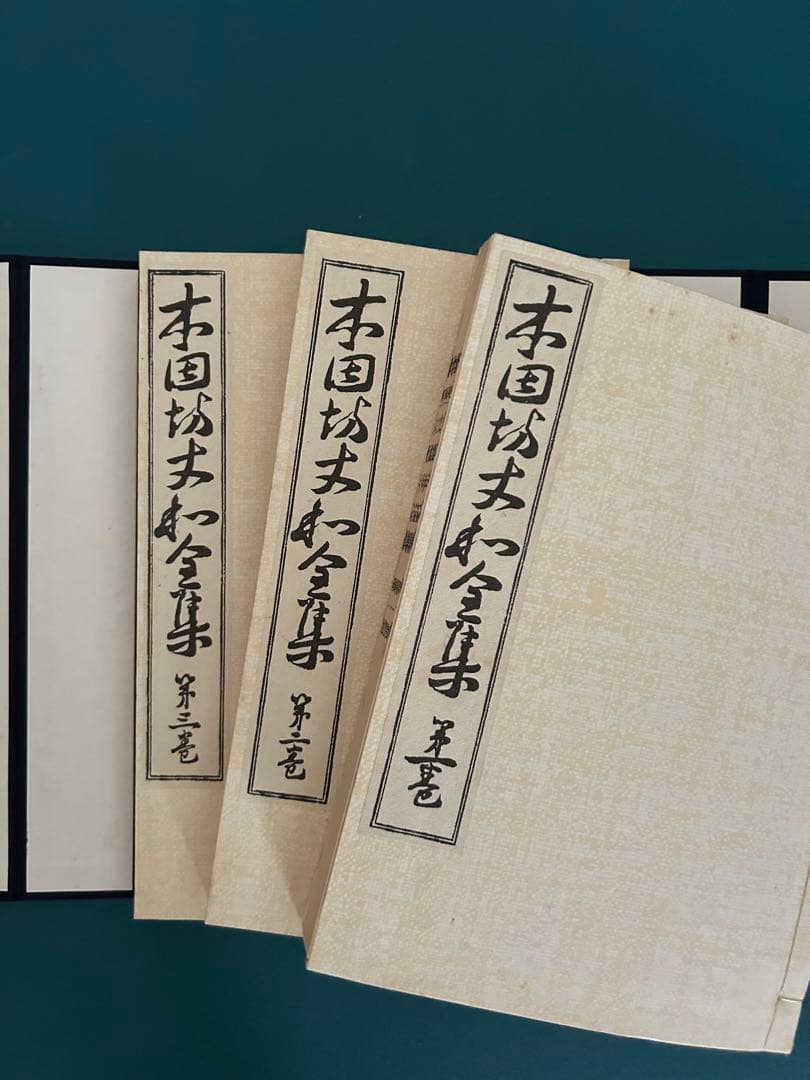 本因坊丈和全集 第一巻
本因坊丈和全集 第二巻
本因坊丈和全集 第三巻